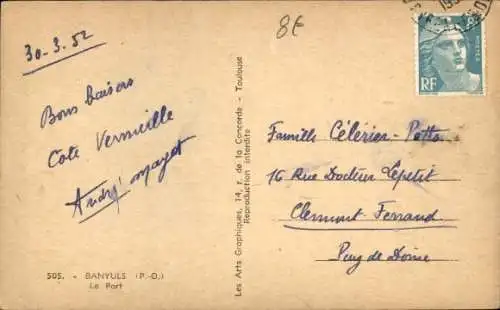 30-3.52
8€
Bons baisers
Cote Vermeille
André Mayet
505. - BANYULS (P.-O.)
Le Port
Les Arts Graphiques, 14, r. de la Concorde - Toulouse
Reproduction interdite
RF
POSTES
Famille Célérier-Potto
16 Rue Docteur Lepetit
Clermont-Ferrand
Puy de Dôme